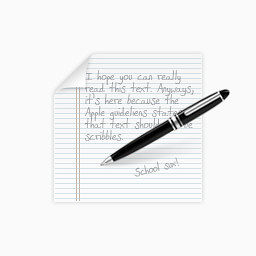 I hope you can really
read this text. Anyways,
it's here because the
Apple guideliens state
that text should
scribbles.
School sux!